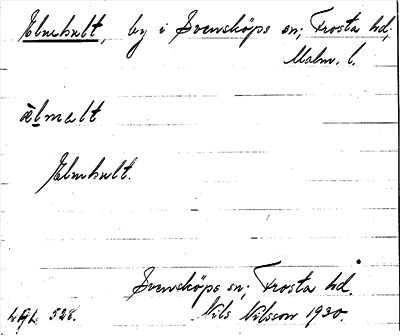 Elmhult, by i Svensköps sn; Frosta hd,
Malm. l.
ælmalt
Elmhult.
Svensköps sn; Frosta hd.
Nils Nilsson 1930.
528.